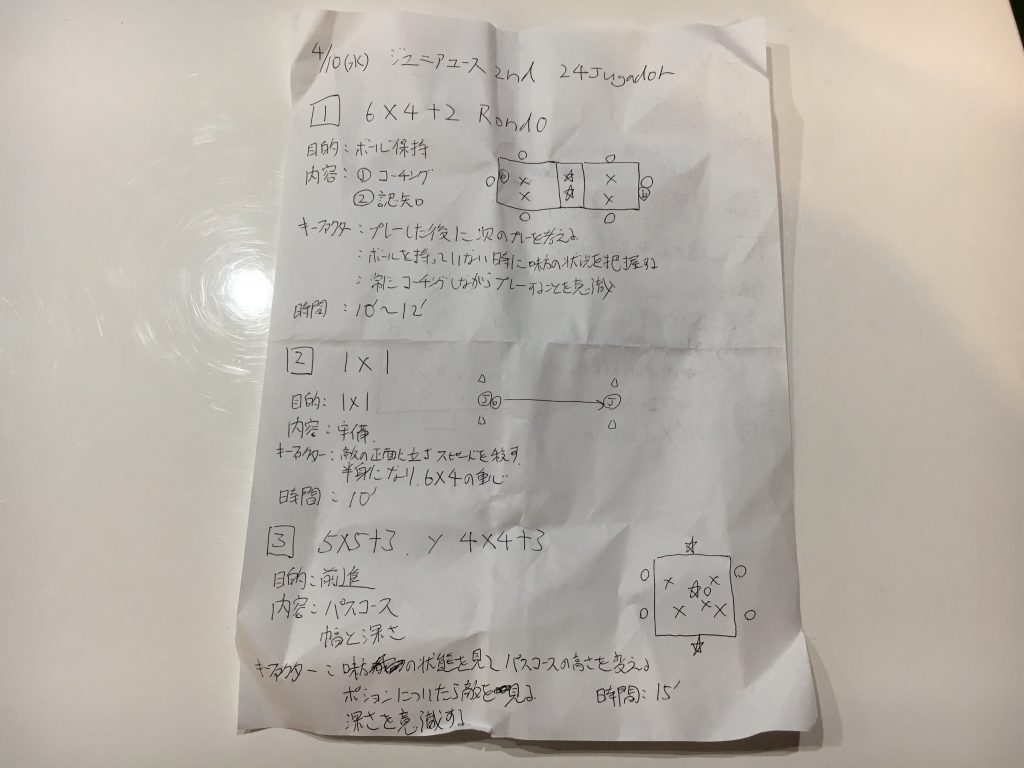 4/10(水) ジュニアユース 2nd 24 Jugador
1 6×4+2 Rondo
目的:ボール保持
内容:① コーチング
② 認知
キーファクター:プレーした後に次のプレーを考える
:ボールを持っていない時に味方の状況を把握する
:常にコーチングしながらプレーすることを意識
時間:10'~12'
2 1×1
目的:1×1
内容:守備
キーファクター:敵の正面に立ちスピードを殺す.
半身になり、6×4の重心
時間:10'
3 5×5+3. y 4×4+3
目的:前進
内容:パスコース
幅と深さ
キーファクター:味方の状態を見てパスコースの高さを変える
ポジションについたら敵を見る
時間:15'
深さを意識する